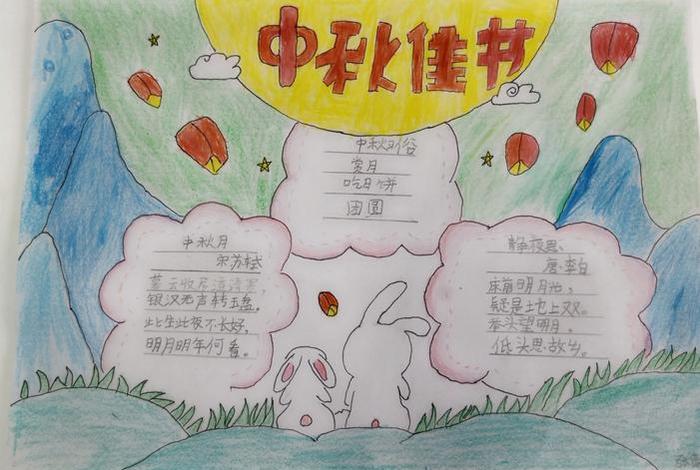 中秋佳节
中秋习俗
赏月
吃月饼
团圆
中秋月
宋苏轼
暮云收尽溢清寒
银汉无声转玉盘,
此生此夜不长好,
明月明年何看。
静夜思、
唐:李白
床前明月光,
疑是地上双。
举头望明月,
低头思故乡。